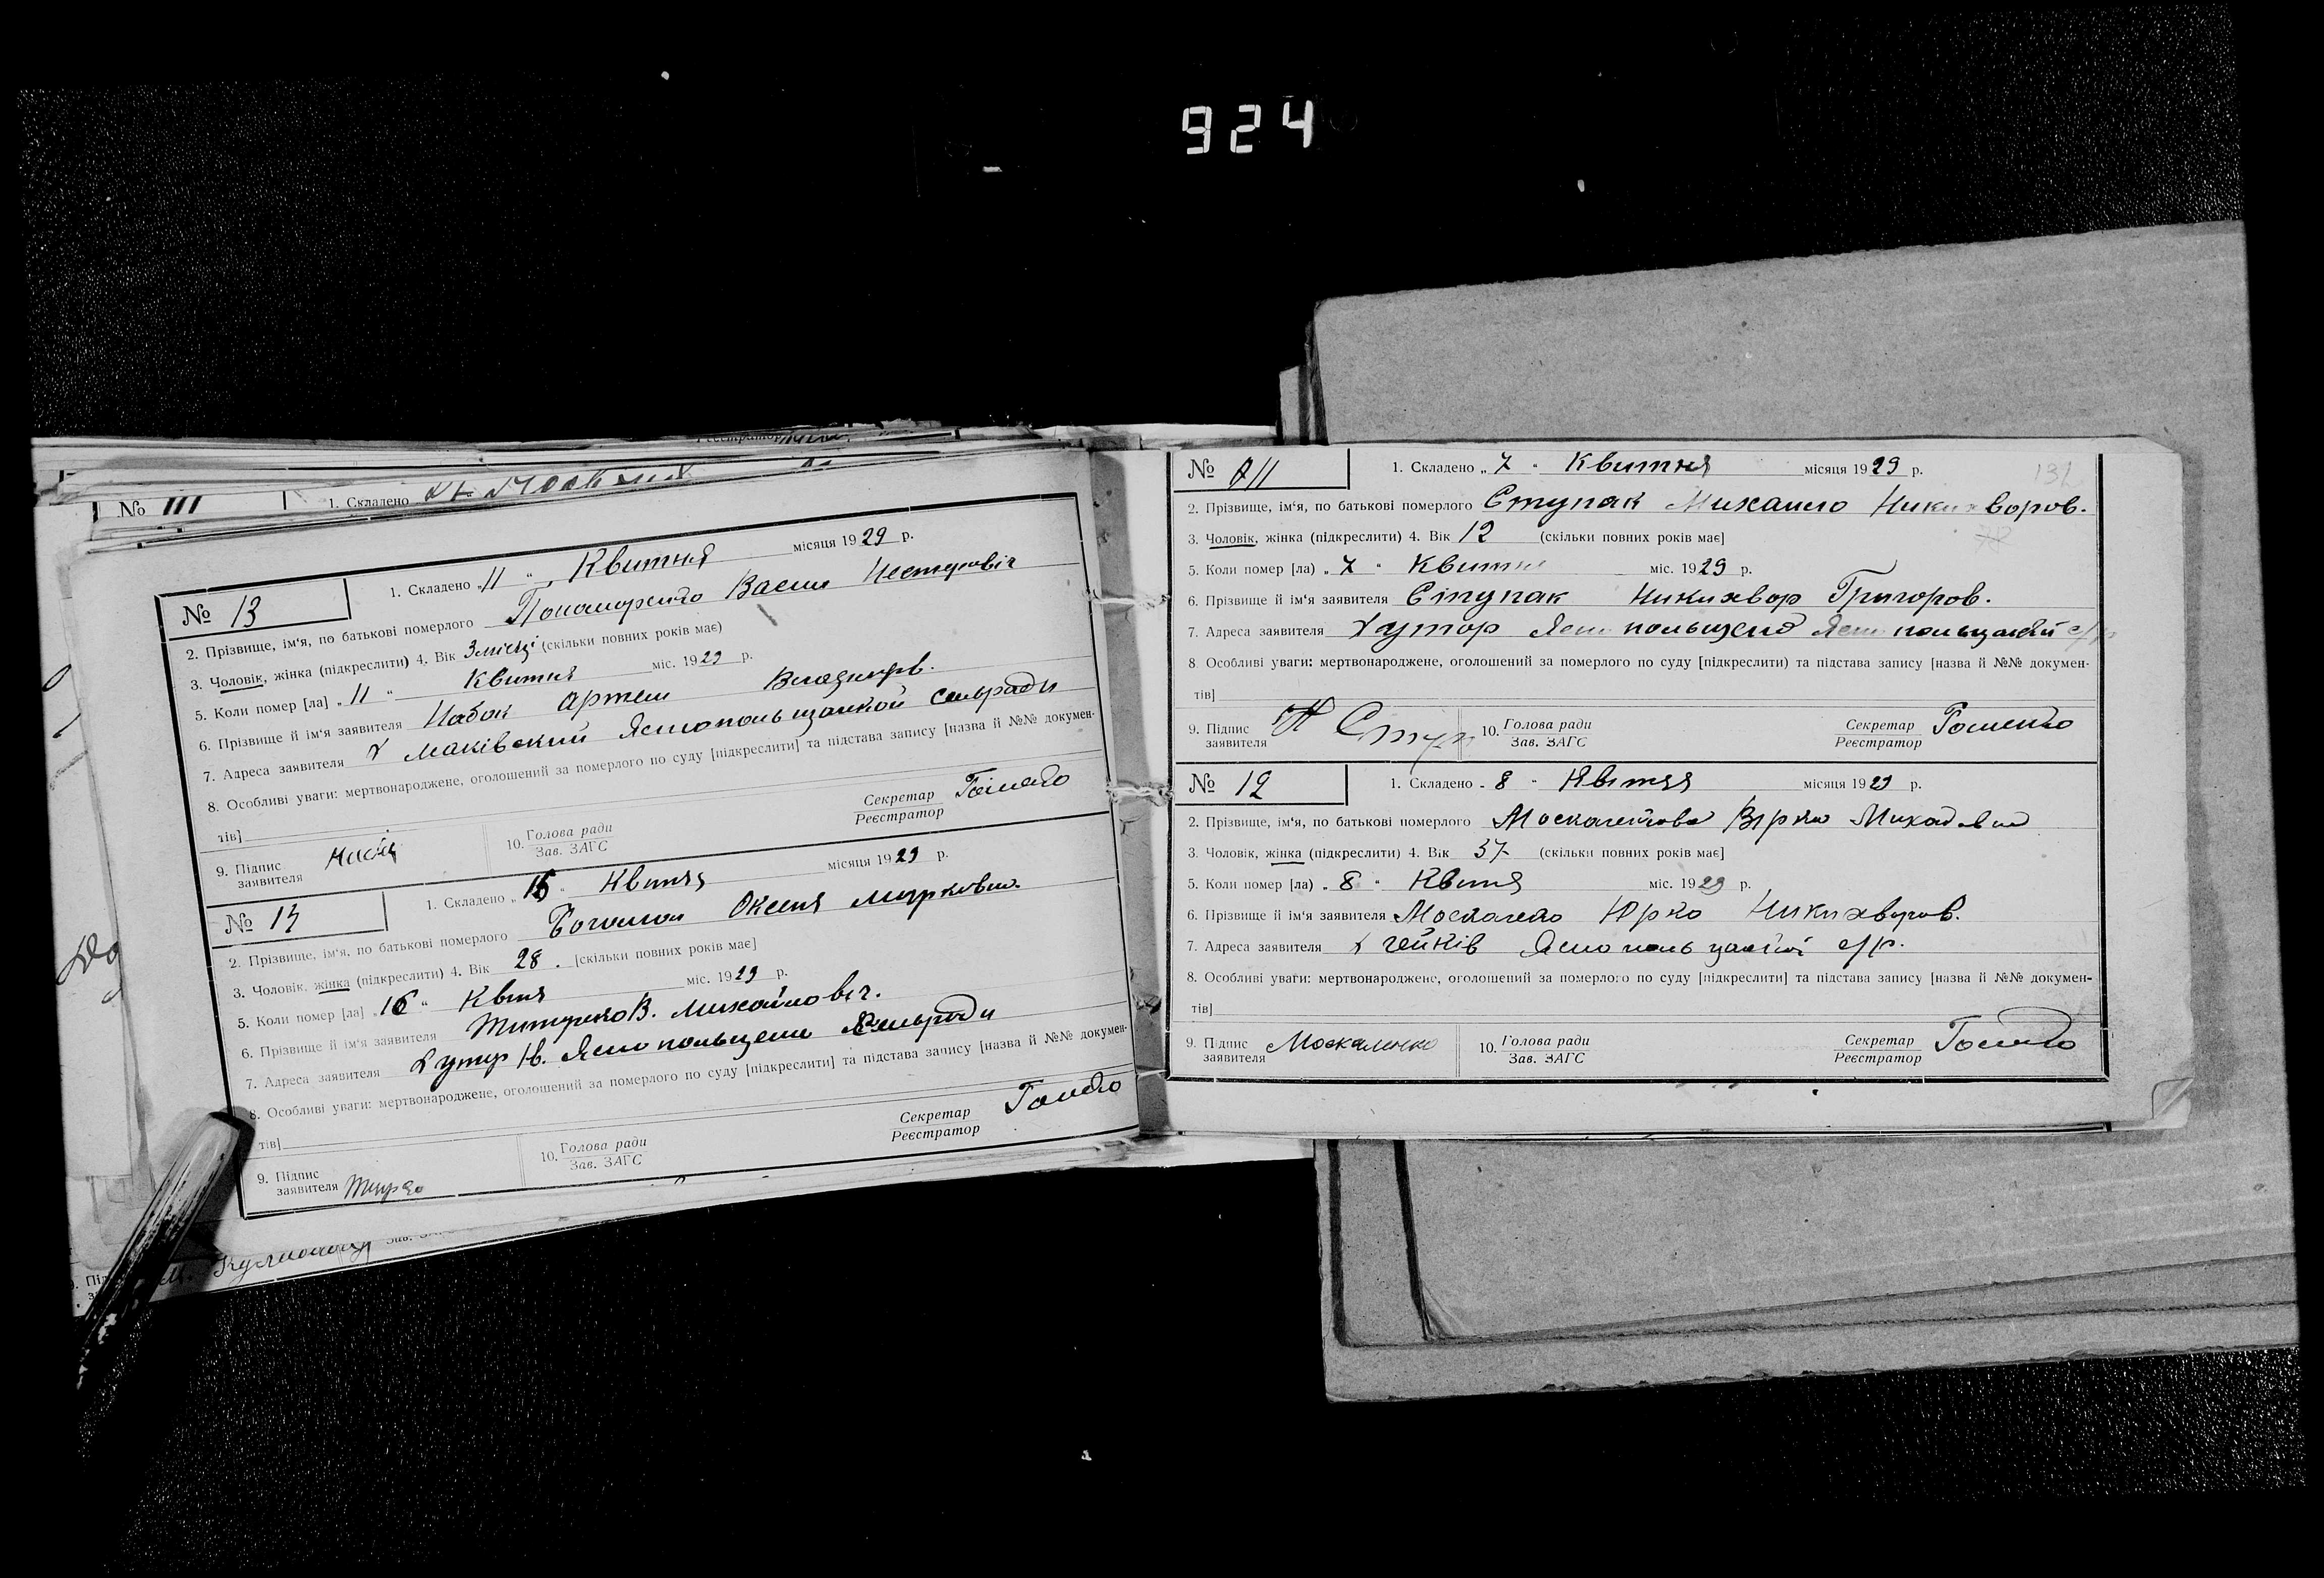 924
№ 111
1. Складено
№ 13
1. Складено „ 11 “ Квитня місяця 1929 р.
2. Прізвище, ім'я, по батькові померлого Понаморенко Васил Нестерович
3. Чоловік, жінка (підкреслити) 4. Вік 3 місяці (скільки повних років має)
5. Коли помер [ла] „ 11 “ Квитня міс. 1929 р.
6. Прізвище й ім'я заявителя Набок Артем
7. Адреса заявителя х Маківский Яснопольщанкой сельради
8. Особливі уваги: мертвонароджене, оголошений за померлого по суду [підкреслити] та підстава запису [назва й №№ докумен-
тів]
9. Підпис заявителя
10. Голова ради
Зав. ЗАГС
Секретар
Реєстратор
№ 14
1. Складено „ 16 “ Квитня місяця 1929 р.
2. Прізвище, ім'я, по батькові померлого Оксеня
3. Чоловік, жінка (підкреслити) 4. Вік 28. [скільки повних років має]
5. Коли помер [ла] „ 16 “ Квтня міс. 1929 р.
6. Прізвище й ім'я заявителя В. Михайлович.
7. Адреса заявителя Хутур Сельради
8. Особливі уваги: мертвонароджене, оголошений за померлого по суду [підкреслити] та підстава запису [назва й №№ докумен-
тів]
9. Підпис заявителя
10. Голова ради
Зав. ЗАГС
Секретар
Реєстратор
№ 11
1. Складено „ 7 “ Квитня місяця 1929 р.
131
2. Прізвище, ім'я, по батькові померлого Ступак Михаило Никихворов.
3. Чоловік, жінка (підкреслити) 4. Вік 12 (скільки повних років має]
5. Коли помер [ла) „ 7 “ Квитня міс. 1929 р.
6. Прізвище й ім'я заявителя Ступак Никихвор Григоров.
7. Адреса заявителя Хутор с/р
8. Особливі уваги: мертвонароджене, оголошений за померлого по суду [підкреслити) та підстава запису [назва й №№ докумен-
тів]
9. Підпис заявителя Н Ступ
10. Голова ради
Зав. ЗАГС
Секретар
Реєстратор
№ 12
1. Складено „ 8 “ Квітня місяця 1929 р.
2. Прізвище, ім'я, по батькові померлого
3. Чоловік, жінка (підкреслити) 4. Вік 37 (скільки повних років має]
5. Коли помер [ла) „ 8 “ Квитня міс. 1929 р.
6. Прізвище й ім'я заявителя Москаленко Юрко Никихворов.
7. Адреса заявителя х с/р.
8. Особливі уваги: мертвонароджене, оголошений за померлого по суду [підкреслити] та підстава запису [назва й №№ докумен-
тів]
9. Підпис заявителя Москаленко
10. Голова ради
Зав. ЗАГС
Секретар
Реєстратор